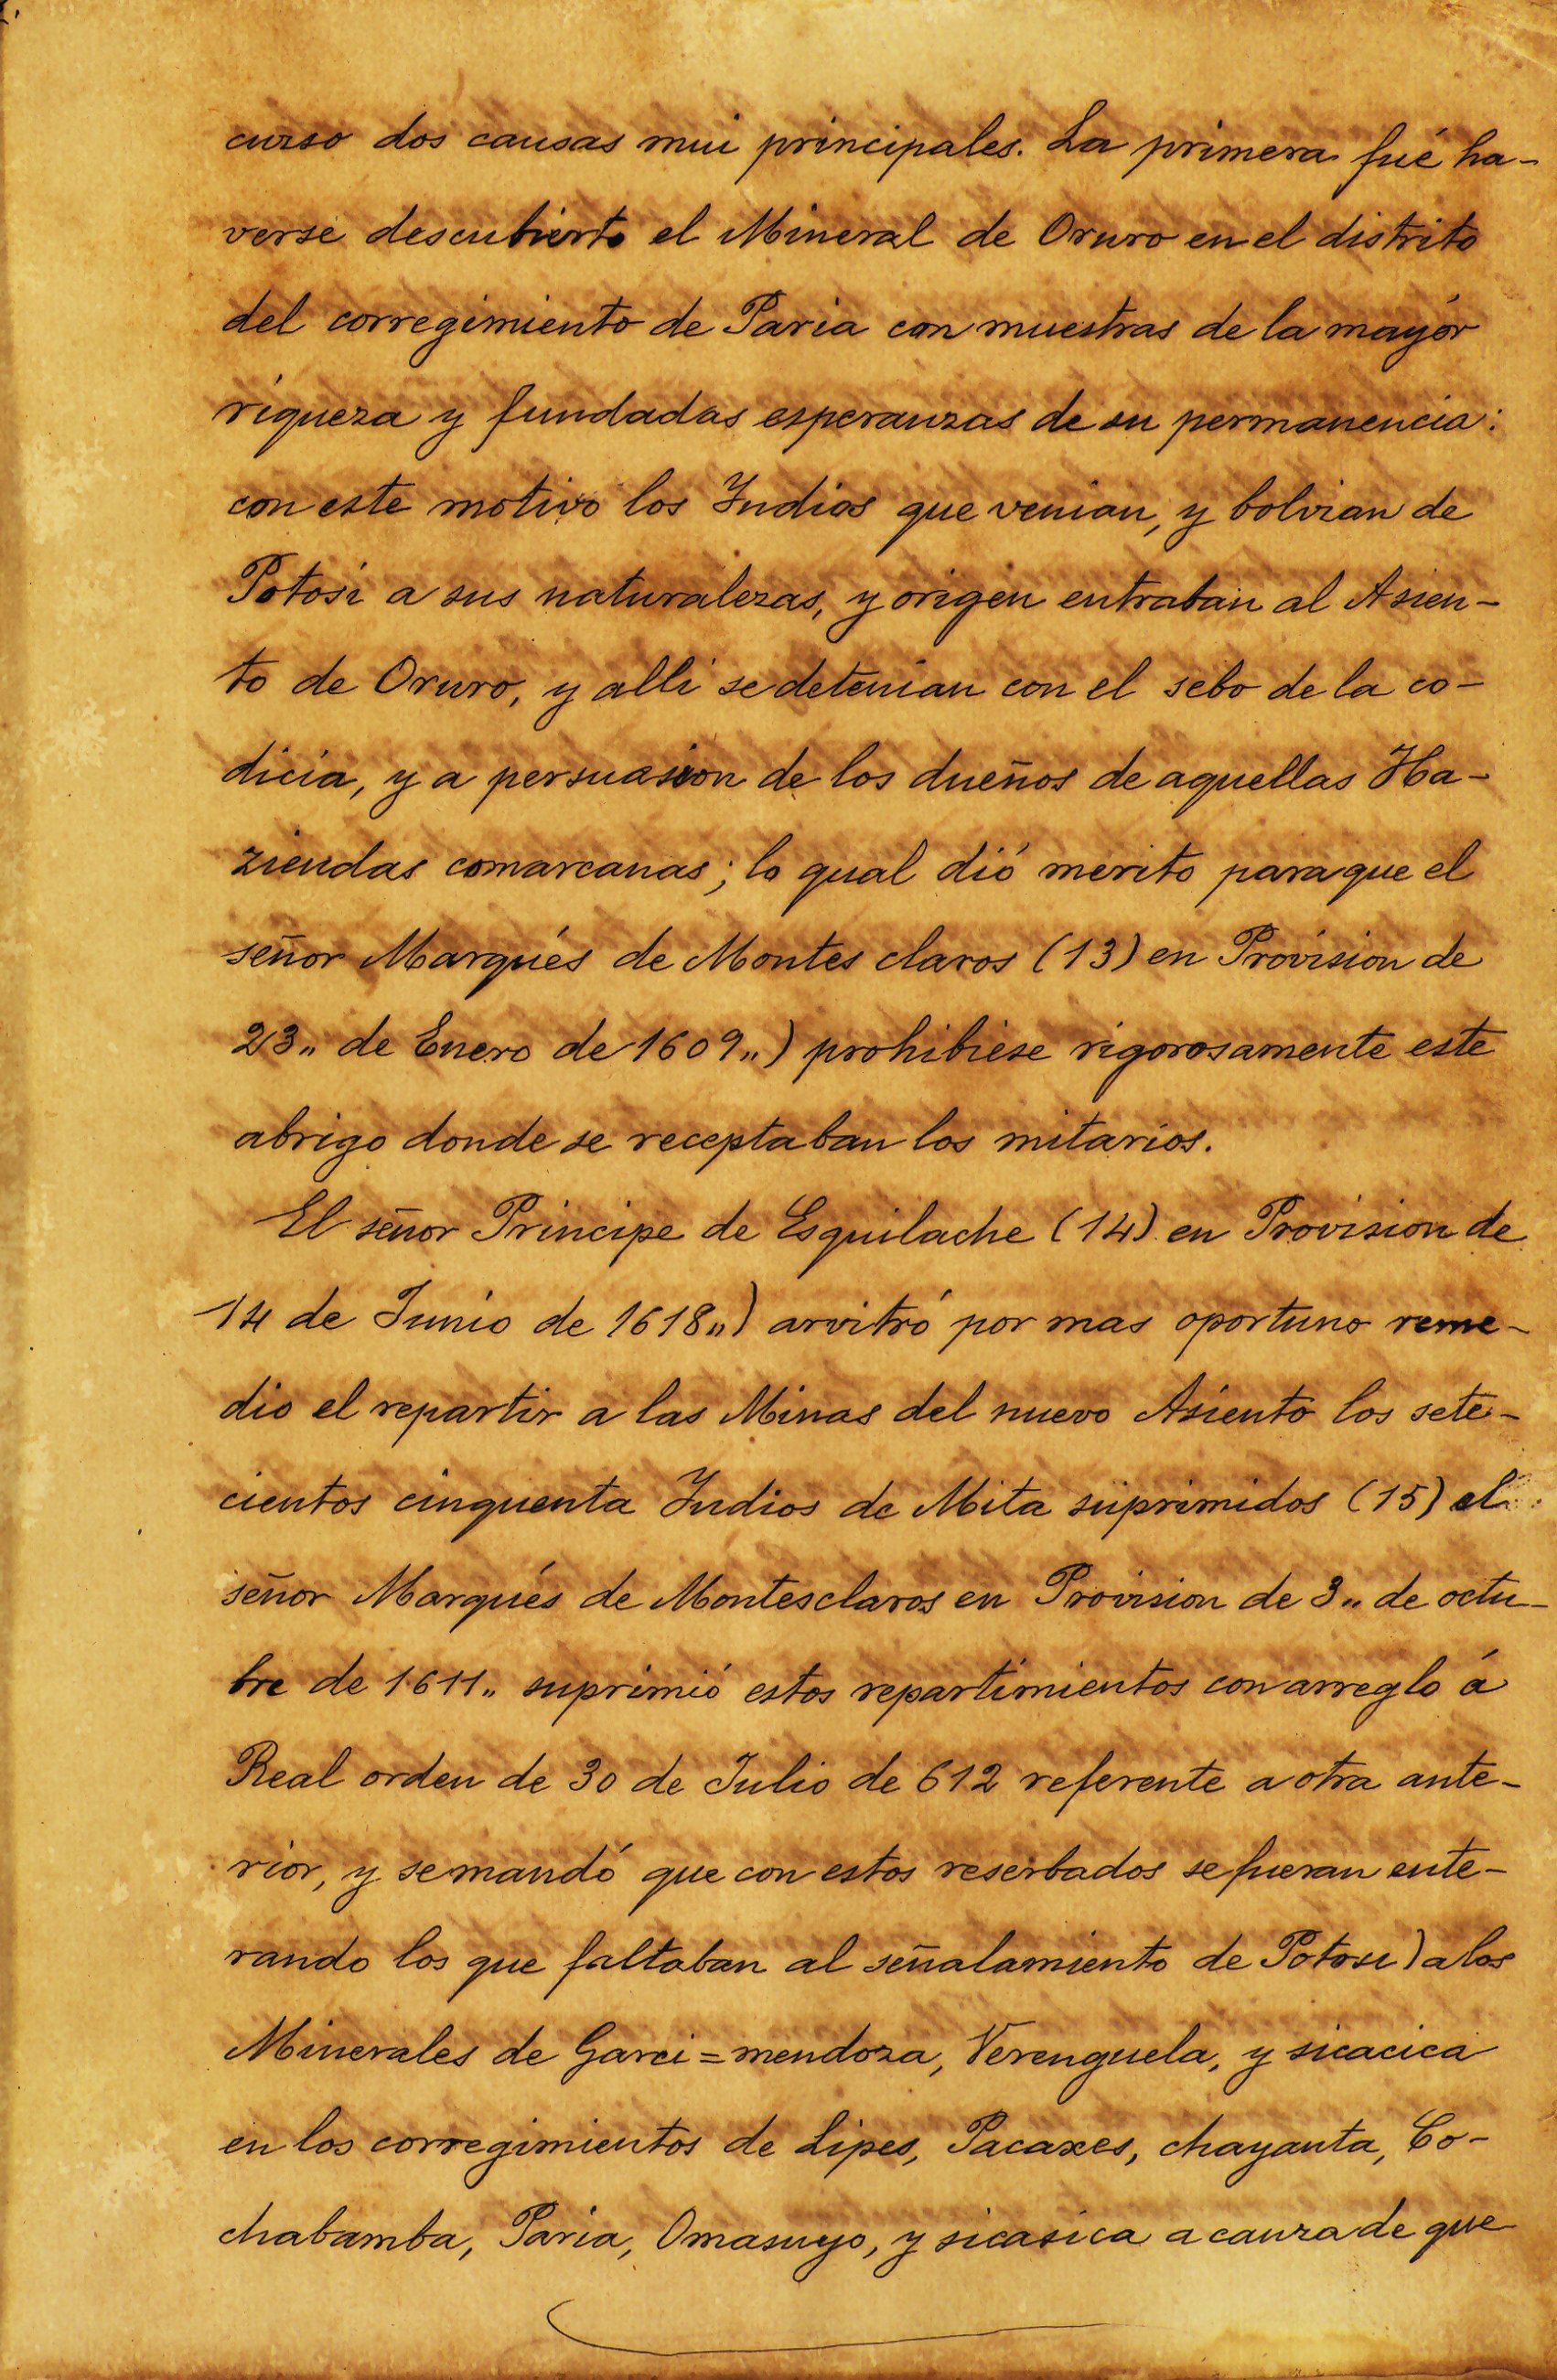 curso dos causas mui principales. La primera fué ha-
verse descubierto el Mineral de Oruro en el distrito
del corregimiento de Paria con muestras de la mayór
riqueza y fundadas esperanzas de su permanencia:
con este motivo los Indios que venian, y bolvian de
Potosi a sus naturalezas, y origen entraban al Asien-
to de Oruro, y alli se detenian con el sebo de la co-
dicia, y a persuasion de los dueños de aquellas Ha-
ziendas comarcanas; lo qual dió merito paraque el
señor Marqués de Montes claros (13) en Provision de
23,, de Enero de 1609,,) prohibiese rigorosamente este
abrigo donde se receptaban los mitarios.
El señor Principe de Esquilache (14) en Provision de
14 de Junio de 1618,,) arvitró por mas oportuno reme-
dio el repartir a las Minas del nuevo Asiento los sete-
cientos cinquenta Indios de Mita suprimidos (15) el
señor Marqués de Montesclaros en Provision de 3,, de octu-
bre de 1611,, suprimió estos repartimientos con arreglo á
Real orden de 30 de Julio de 612 referente a otra ante-
rior, y se mandó que con estos reserbados se fueran ente-
rando los que faltaban al señalamiento de Potosi) a los
Minerales de Garci=mendoza, Verenguela, y sicacica
en los corregimientos de Lipes, Pacaxes, chayanta, Co-
chabamba, Paria, Omasuyo, y sicasica a cauza de que